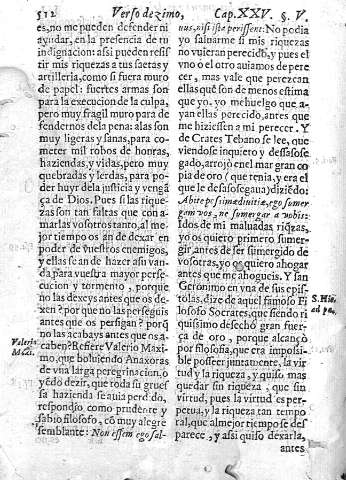 512 Verso dezimo, Cap. XXV. §. V.
es, no me pueden defender ni
ayudar, en la presencia de mi
indignacion: assi pueden resistir
mis tiraos a tus saetas y
artilleria, como si fuera muro
de papel: fuertes armas son
para la execucion de la culpa,
pero muy fragil muro para defendernos
dela pena: alas son
muy ligeras y sanas, para cometer
mil robos de honras,
haziendas, y vidas, pero muy
quebradas y lerdas, para poder
huyr dela justicia y vengãça
de Dios. Pues si las riquezas
son tan faltas que con amarlas
vosotros tanto, al mejor
tiempo os ãn de dexar en
poder de vuestros enemigos,
y ellas se an de hazer assi vanda
para vuestra mayor persecucion
y tormento, porque
no las dexeys antes que os dexen?
por que no las perseguis
antes que os persigan? porq̃
no las acabays antes que os acaben?
Refiere Valerio Maximo,
que boluiendo Anaxoras
de vna larga peregrinacion, o
yẽdo dezir, que toda su gruessa
hazienda se auia perdido,
respondio como prudente y
sabio filosofo, cõ muy alegre
semblante: Non essem ego sal-
Valerio
Maxi.
uus, nisi istæ perissent: No podia
yo saluarme si mis riquezas
no vuieran perecido, y pues el
vno o el otro auiamos de perecer,
mas vale que perezcan
ellas quẽ son de menos estima
que yo. yo me huelgo que ayan
ellas perecido, antes que
me hiziessen a mi perecer. Y
de Crates Tebano se lee, que
viendose inquieto y dessasosegado,
arrojò en el mar gran copia
de oro (que tenia, y era el
que le desasosegaua) diziẽdo:
Abite pessimæ diuitiæ, ego sumergam
vos, ne sumergar a vobis:
Idos de mi maluadas riq̃zas,
yo os quiero primero sumergir,
antes de ser sumergido de
vosotras, yo os quiero ahogar
antes que me ahogueis. Y san
Geronimo en vna de sus epistolas,
dize de aquel famoso Filosofo
Socrates, que siendo riquissimo
desechò gran fuerça
de oro, porque alcançò
por filosofia, que era impossible
posseer juntamente, la virtud
y la riqueza, y quiso mas
quedar sin riqueza, que sin
virtud, pues la virtud es perpetua,
y la riqueza tan temporal,
que al mejor tiempo se desparece,
y assi quiso dexarla,
antes
S. Hie.
ad pau.